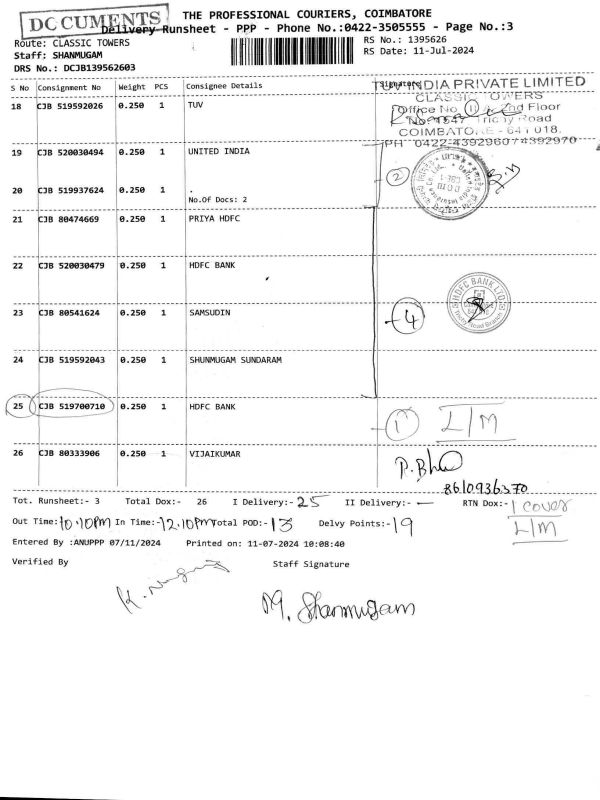 DC CUMENTS
THE PROFESSIONAL COURIERS, COIMBATORE
Delivery Runsheet - PPP - Phone No.:0422-3505555 - Page No.:3
Route: CLASSIC TOWERS
RS No.: 1395626
Staff: SHANMUGAM
RS Date: 11-Jul-2024
DRS No.: DCJB139562603
S No Consignment No Weight PCS Consignee Details Signature
TUV INDIA PRIVATE LIMITED
CLASSIC TOWERS
18 CJB 519592026 0.250 1 TUV
Office No. 2nd Floor
No. 1547 Trichy Road
COIMBATORE - 641 018.
PH 0422-4392960 / 4392970
19 CJB 520030494 0.250 1 UNITED INDIA
2
20 CJB 519937624 0.250 1 .
No.Of Docs: 2
21 CJB 80474669 0.250 1 PRIYA HDFC
22 CJB 520030479 0.250 1 HDFC BANK
HDFC BANK LTD
Trichy Road Branch
23 CJB 80541624 0.250 1 SAMSUDIN
4
24 CJB 519592043 0.250 1 SHUNMUGAM SUNDARAM
25 CJB 519700710 0.250 1 HDFC BANK
1 L/M
26 CJB 80333906 0.250 1 VIJAIKUMAR
8610936370
Tot. Runsheet:- 3 Total Dox:- 26 I Delivery:- 25 II Delivery:- — RTN Dox:- 1 cover
L/M
Out Time:10.10PM In Time:-12.10PM Total POD:- 13 Delvy Points:- 19
Entered By :ANUPPP 07/11/2024 Printed on: 11-07-2024 10:08:40
Verified By Staff Signature
M. Shanmugam